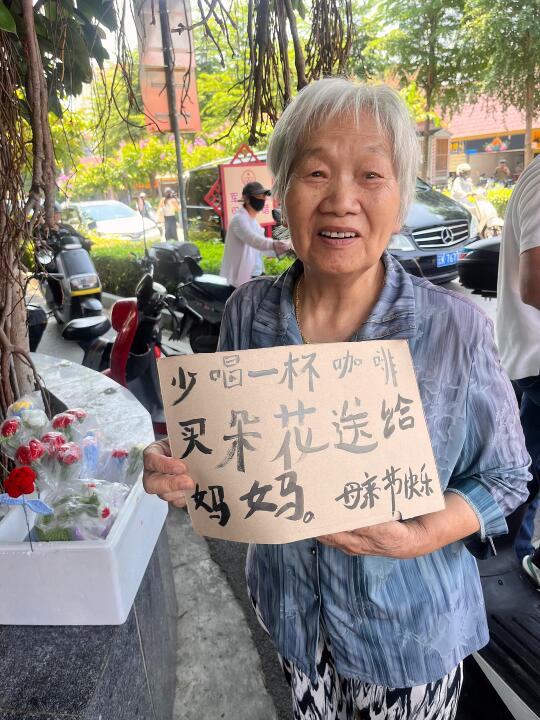 少喝一杯咖啡
买朵花送给
妈妈。母亲节快乐